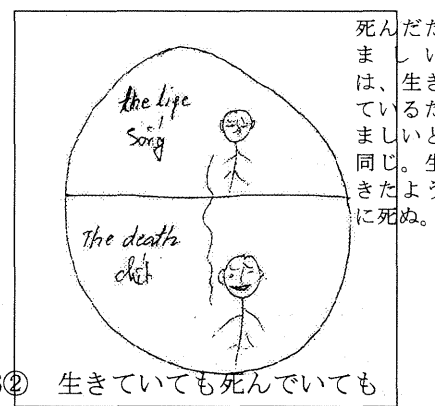 死んだた
ましい
は、生き
ているた
ましいと
同じ。生
きたよう
に死ぬ。
the life
song
The death
② 生きていても死んでいても